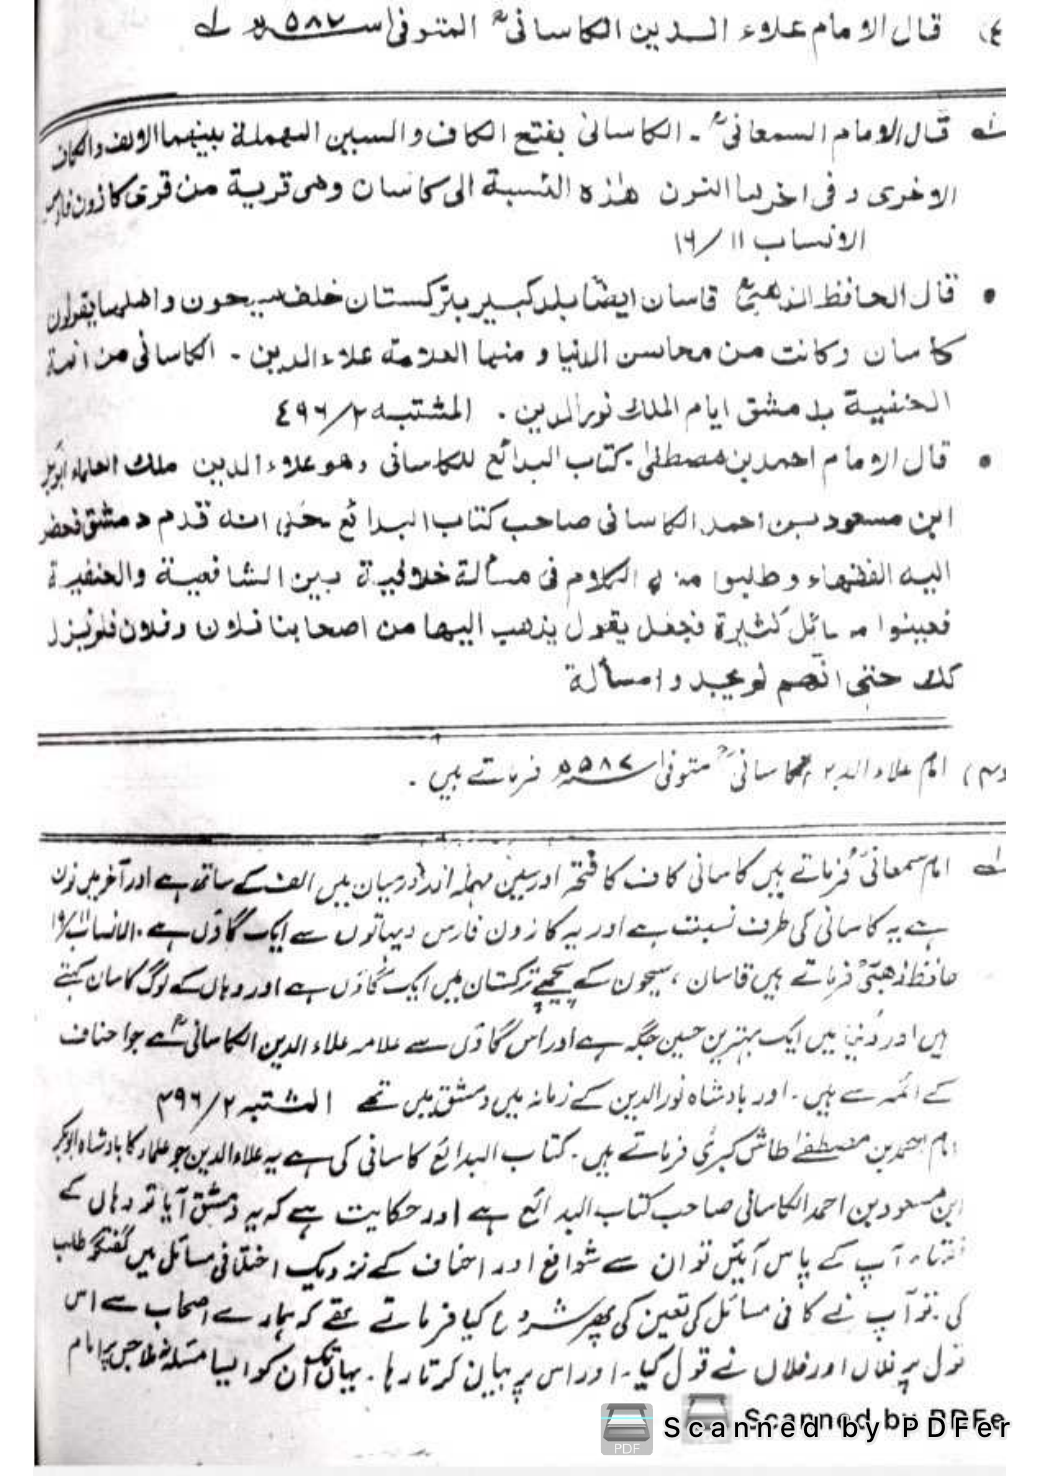 ٤) قال الامام علاء الدين الكاسانیؒ المتوفی ٥٨٧ھ لے
لے قال الامام السمعانیؒ ۔ الكاسانی بفتح الكاف والسين المهملة بينهما الالف والكاف
الاخری و فی اخرها النون هذه النسبة الی كاسان وهی قرية من قری كازون فارس
الانساب ١١/١٦
• قال الحافظ الذهبیؒ قاسان ايضًا بلد كبير بتركستان خلف سيحون واهلها يقولون
كاسان وكانت من محاسن الدنيا و منها العلامة علاء الدين ۔ الكاسانی من ائمة
الحنفية بدمشق ايام الملك نور الدين ۔ المشتبه ٢/٤٩٦
• قال الامام احمد بن مصطفیٰ كتاب البدائع للكاسانی وهو علاء الدين ملك العلماء ابوبكر
ابن مسعود بن احمد الكاسانی صاحب كتاب البدائع حكی انه قدم دمشق فحضر
اليه الفقهاء وطلبوا منه الكلام فی مسألة خلافية بين الشافعية والحنفية
فعينوا مسائل كثيرة فجعل يقول يذهب اليها من اصحابنا فلان وفلان فلم يزل
كذلك حتی انهم لم يجدوا مسألة
(۴) امام علاء الدین کاسانیؒ متوفی ۵۵۸۷ فرماتے ہیں ۔
لے امام سمعانیؒ فرماتے ہیں کاسانی کاف کا فتحہ اور سین مہملہ اور درمیان میں الف کے ساتھ ہے اور آخر میں نون
ہے یہ کاسانی کی طرف نسبت ہے اور یہ کازون فارس دیہاتوں سے ایک گاؤں ہے ۔ الانساب ۱۱/۱۶
حافظ ذھبیؒ فرماتے ہیں قاسان ، سیحون کے پیچھے ترکستان میں ایک گاؤں ہے اور وہاں کے لوگ کاسان کہتے
ہیں اور دُنیا میں ایک بہترین حسین جگہ ہے اور اس گاؤں سے علامہ علاء الدین الکاسانیؒ ہے جو احناف
کے ائمہ سے ہیں ۔ اور بادشاہ نور الدین کے زمانہ میں دمشق میں تھے المشتبہ ۲/۴۹۶
امام احمد بن مصطفےٰ طاش کبریٰ فرماتے ہیں ۔ کتاب البدائع کاسانی کی ہے یہ علاء الدین جو علماء کا بادشاہ ابوبکر
ابن مسعود بن احمد الکاسانی صاحب کتاب البدائع ہے اور حکایت ہے کہ یہ دمشق آیا تو وہاں کے
فقہاء آپ کے پاس آئیں تو ان سے شوافع اور احناف کے نزدیک اختلافی مسائل میں گفتگو طلب
کی تو آپ نے کافی مسائل کی تعین کی پھر شروع کیا فرماتے تھے کہ ہمارے اصحاب سے اس
قول پر فلاں اور فلاں نے قول کیا ۔ اور اس پر بیان کرتا رہا ۔ یہاں تک ان کو ایسا مسئلہ نہ ملا جس پر امام
Scanned by PDFer
Scanned by PDFer
PDF